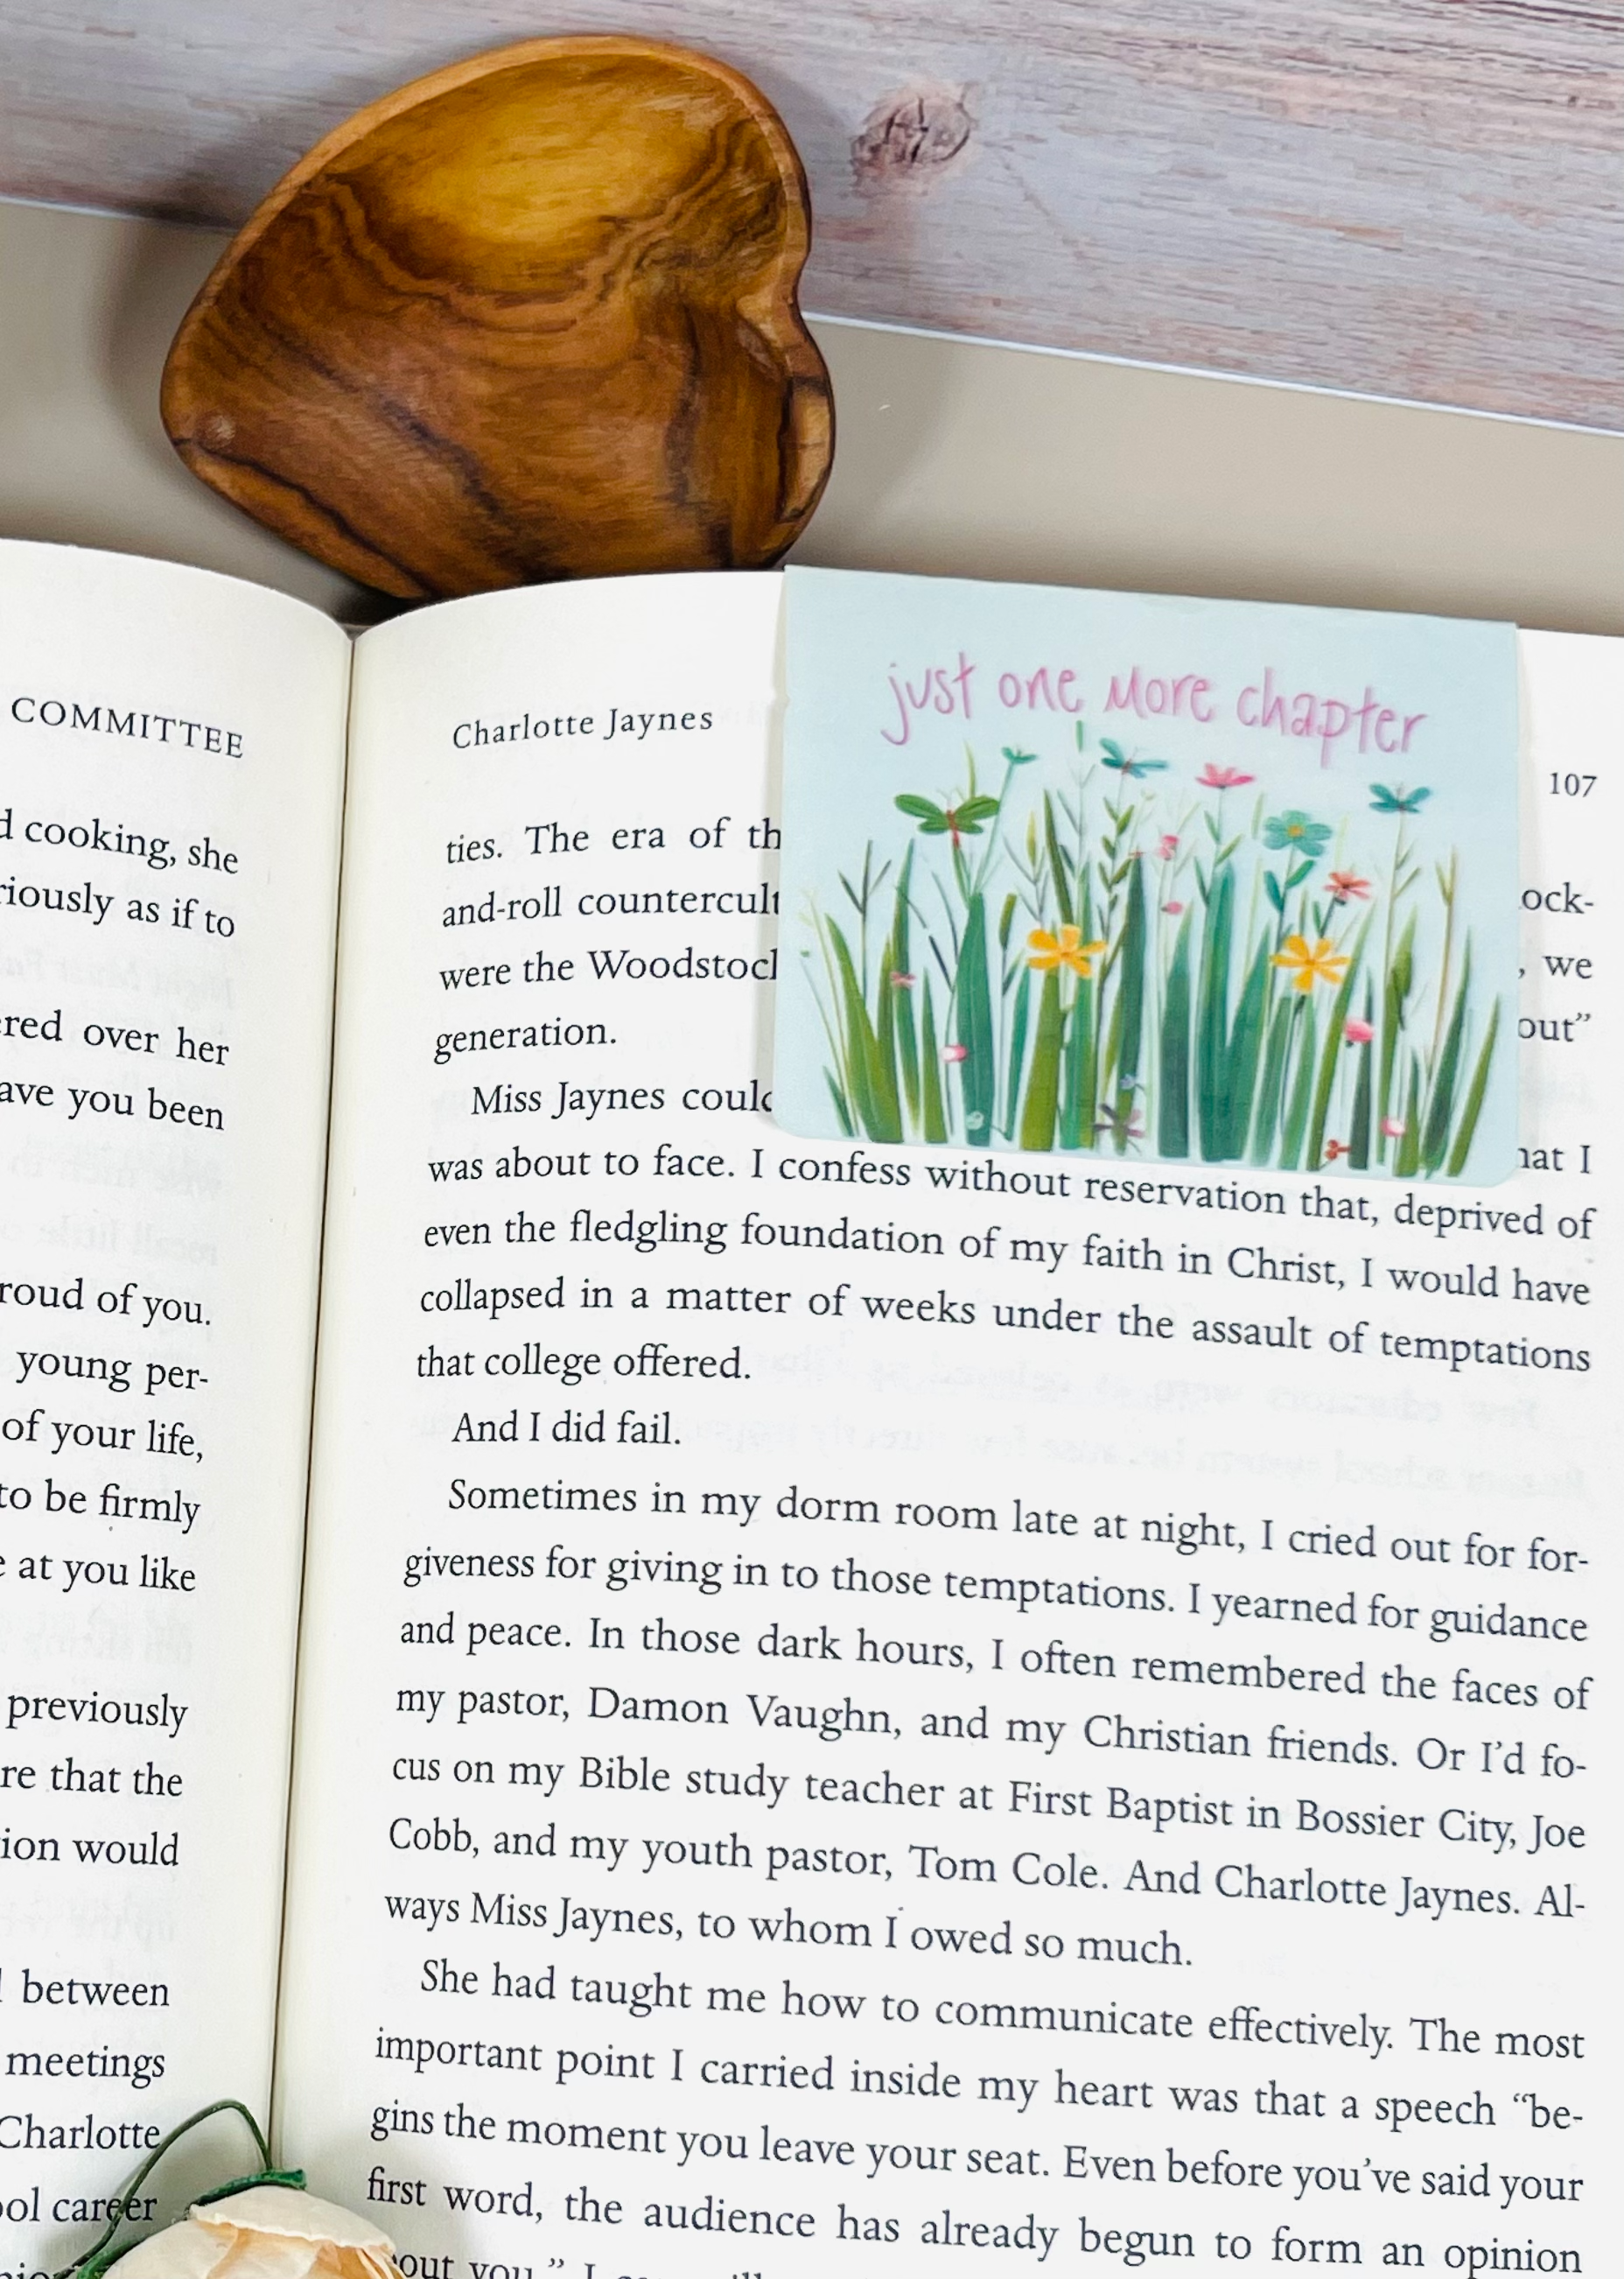 COMMITTEE
cooking, she
as if to
over her
you been
of you.
young per-
of your life,
to be firmly
at you like
previously
that the
would
between
meetings
Charlotte
career
Charlotte Jaynes
107
just one more chapter
ties. The era of
and-roll
were the
generation.
Miss Jaynes
, we
out”
I
was about to face. I confess without reservation that, deprived of
even the fledgling foundation of my faith in Christ, I would have
collapsed in a matter of weeks under the assault of temptations
that college offered.
And I did fail.
Sometimes in my dorm room late at night, I cried out for for-
giveness for giving in to those temptations. I yearned for guidance
and peace. In those dark hours, I often remembered the faces of
my pastor, Damon Vaughn, and my Christian friends. Or I’d fo-
cus on my Bible study teacher at First Baptist in Bossier City, Joe
Cobb, and my youth pastor, Tom Cole. And Charlotte Jaynes. Al-
ways Miss Jaynes, to whom I owed so much.
She had taught me how to communicate effectively. The most
important point I carried inside my heart was that a speech “be-
gins the moment you leave your seat. Even before you’ve said your
first word, the audience has already begun to form an opinion
you.” I